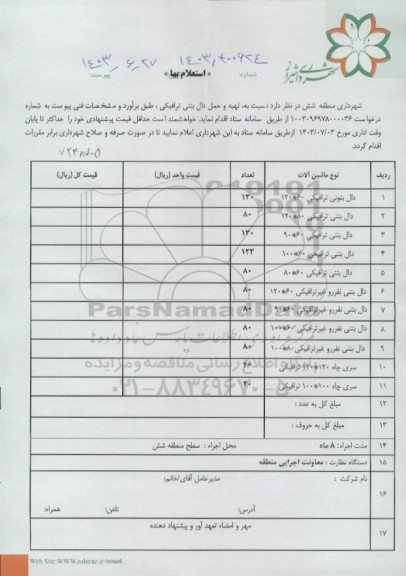 شهرداری شیراز
شماره: ۱۴۰۳/۴۰۰۶۲۴
۱۴۰۳/۶/۲۷
پیوست:
« استعلام بها »
شهرداری منطقه شش در نظر دارد نسبت به، تهیه و حمل دال بتنی ترافیکی ، طبق برآورد و مشخصات فنی پیوست به شماره
درخواست ۱۰۰۳۰۹۶۹۷۸۰۰۰۰۳۶ از طریق سامانه ستاد اقدام نماید. خواهشمند است حداقل قیمت پیشنهادی خود را حداکثر تا پایان
وقت اداری مورخ ۱۴۰۳/۰۷/۰۳ ازطریق سامانه ستاد به این شهرداری اعلام نمایید تا در صورت صرفه و صلاح شهرداری برابر مقررات
اقدام گردد.
ردیف نوع ماشین آلات تعداد قیمت واحد (ریال) قیمت کل (ریال)
۱ دال بتونی ترافیکی ۶۰*۱۲۰ ۱۳۰
۲ دال بتنی ترافیکی ۸۰*۱۲۰ ۸۰
۳ دال بتنی ترافیکی ۶۰*۹۰ ۱۳۰
۴ دال بتنی ترافیکی ۸۰*۱۰۰ ۱۲۳
۵ دال بتنی ترافیکی ۶۰*۸۰ ۸۰
۶ دال بتنی نفررو غیرترافیکی ۶۰*۱۲۰ ۸۰
۷ دال بتنی نفررو غیرترافیکی ۶۰*۹۰ ۸۰
۸ دال بتنی نفررو غیرترافیکی ۶۰*۱۰۰ ۸۰
۹ دال بتنی نفررو غیرترافیکی ۸۰*۱۰۰ ۸۰
۱۰ سری چاه ۱۲۰*۱۲۰ ترافیکی
۱۱ سری چاه ۱۰۰*۱۰۰ ترافیکی
۱۲ مبلغ کل به عدد :
۱۳ مبلغ کل به حروف :
۱۴ مدت اجراء: ۸ ماه محل اجراء : سطح منطقه شش
۱۵ دستگاه نظارت : معاونت اجرایی منطقه
نام شرکت : مدیرعامل آقای/خانم:
۱۶
آدرس: تلفن: همراه:
۱۷ مهر و امضاء تعهد آور و پیشنهاد دهنده
ParsNamadData
پایگاه اطلاع رسانی مناقصه و مزایده
۰۲۱-۸۸۳۴۹۶۷۰-۵
Web Site:WWW.eshiraz.ir